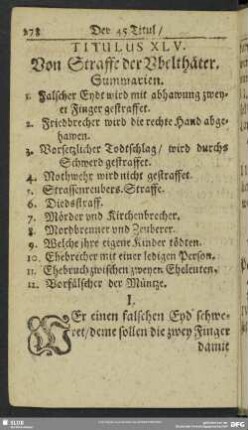 278 Der 45 Titul/
TITULUS XLV.
Von Straffe der Vbelthäter.
Summarien.
1. Falscher Eydt wird mit abhawung zwey-
er Finger gestraffet.
2. Friedbrecher wird die rechte Hand abge-
hawen.
3. Vorsetzlicher Todtschlag/ wird durchs
Schwerd gestraffet.
4. Nothwehr wird nicht gestraffet.
5. Strassenreubers Straffe.
6. Diebsstraff.
7. Mörder vnd Kirchenbrecher.
8. Mordbrenner vnd Zeuberer.
9. Welche jhre eigene Kinder tödten.
10. Ehebrecher mit einer ledigen Person.
11. Ehebruch zwischen zweyen Eheleuten.
12. Vorfälscher der Müntze.
I.
WEr einen falschen Eyd schwe-
ret/ deme sollen die zwey Finger
damit
SLUB